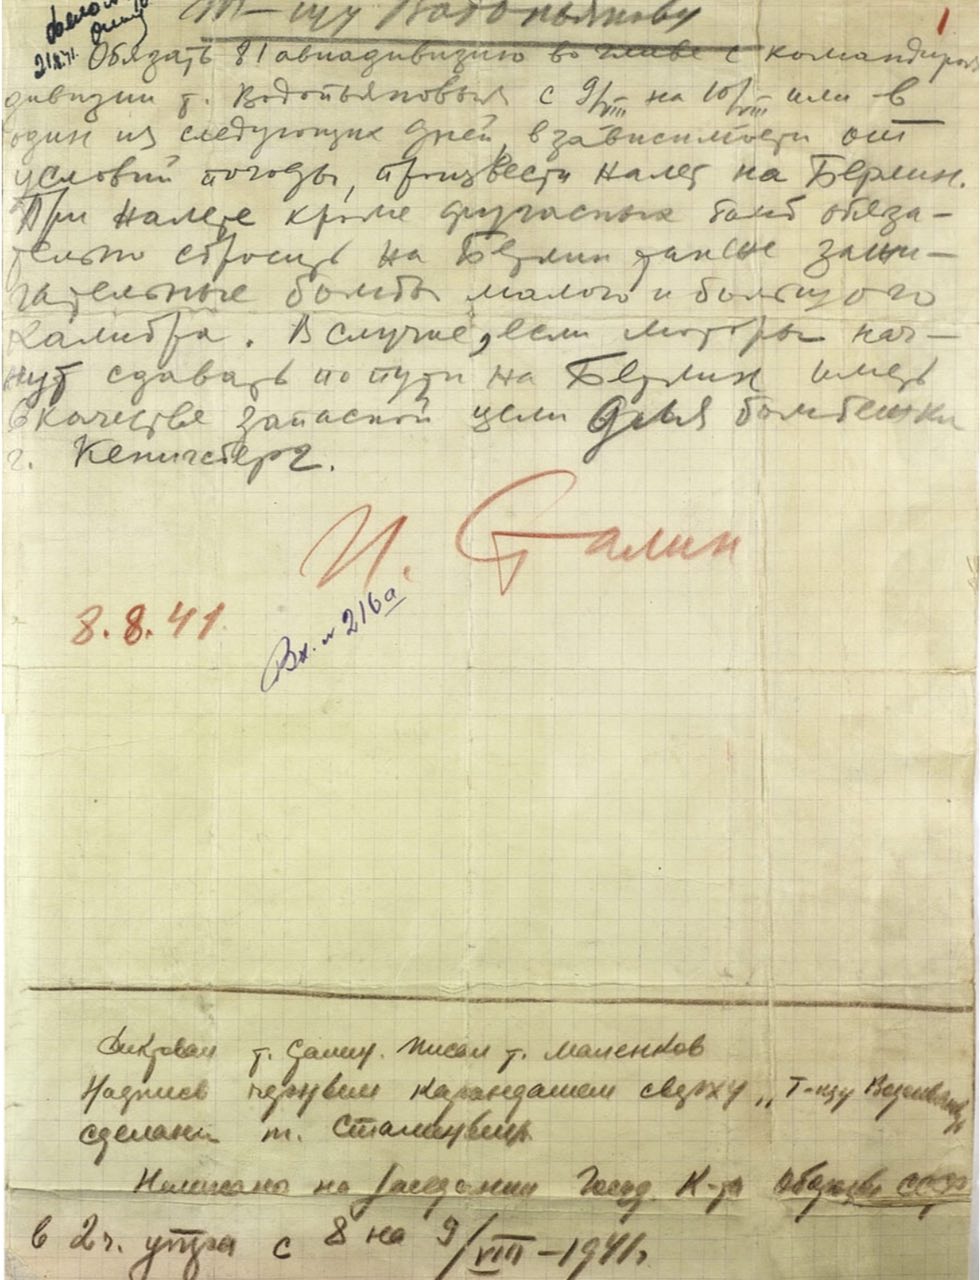 Т-щу Водопьянову
1
21/X 41.
Обязать 81 авиадивизию во главе с командиром
дивизии т. Водопьяновым с 9/VIII на 10/VIII или в
один из следующих дней, в зависимости от
условий погоды, произвести налет на Берлин.
При налете кроме фугасных бомб обяза-
тельно сбросить на Берлин также зажи-
гательные бомбы малого и большого
калибра. В случае, если моторы нач-
нут сдавать по пути на Берлин иметь
в качестве запасной цели для бомбежки
г. Кенигсберг.
И. Сталин
8.8.41
Вх. № 216а
Диктовал т. Сталин. Писал т. Маленков
Надпись черным карандашем сверху „Т-щу Водопьянову
сделана т. Сталиным
Написано на заседании Госуд. К-та Обороны СССР
в 2 ч. утра с 8 на 9/VIII – 1941 г.